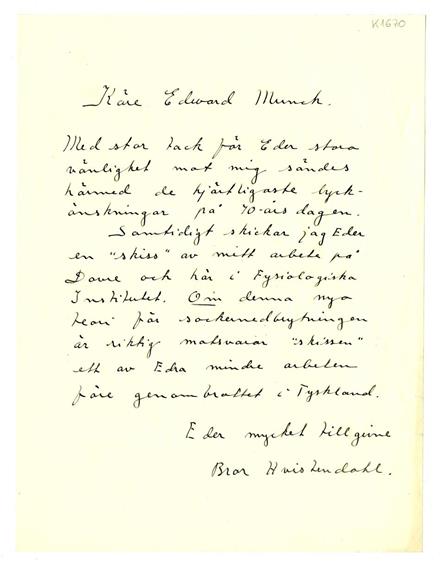 K1670
Käre Edward Munch.
Med stor tack för Eder stora
vänlighet mot mig sändes
härmed de hjärtligaste lyck-
önskningar på 70-års dagen.
Samtidigt skickar jag Eder
en "skiss" av mitt arbete på
Dovre och här i Fysiologiska
Institutet. Om denna nya
teori för sockernedbrytningen
är riktig motsvarar "skissen"
ett av Edra mindre arbeten
före genombrottet i Tyskland.
Eder mycket tillgivne
Bror Hvistendahl.